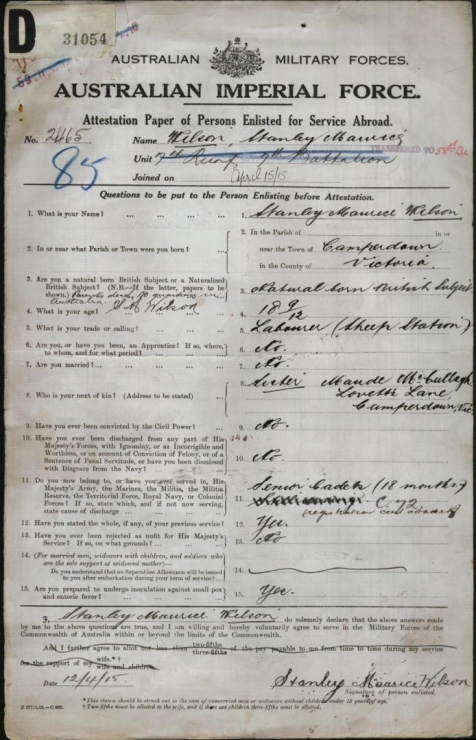 D
31054
AUSTRALIAN MILITARY FORCES.
AUSTRALIAN IMPERIAL FORCE.
Attestation Paper of Persons Enlisted for Service Abroad.
No. 2465 Name Wilson, Stanley Maurice
85
Unit 7th Reinf 7th Battalion
TRANSFERRED TO 58th Bn
Joined on April 15/15.
Questions to be put to the Person Enlisting before Attestation.
1. What is your Name? ... ... ... 1. Stanley Maurice Wilson
2. In or near what Parish or Town were you born? ... 2. In the Parish of in or
near the Town of Camperdown
in the County of Victoria.
3. Are you a natural born British Subject or a Naturalized
British Subject? (N.B.—If the latter, papers to be
shown.) Parents dead, no guardian in
Australia S M Wilson
3. Natural born British Subject
4. What is your age? 4. 18 9/12
5. What is your trade or calling? ... 5. Labourer (Sheep Station)
6. Are you, or have you been, an Apprentice? If so, where,
to whom, and for what period? ... 6. No.
7. Are you married?... ... ... 7. No.
8. Who is your next of kin? (Address to be stated) ... 8. Sister Maude McCullagh
Lovetts Lane,
Camperdown, Vic
9. Have you ever been convicted by the Civil Power? ... 9. No.
10. Have you ever been discharged from any part of His
Majesty's Forces, with Ignominy, or as Incorrigible and
Worthless, or on account of Conviction of Felony, or of a
Sentence of Penal Servitude, or have you been dismissed
with Disgrace from the Navy? ... 10. No.
11. Do you now belong to, or have you ever served in, His
Majesty's Army, the Marines, the Militia, the Militia
Reserve, the Territorial Force, Royal Navy, or Colonial
Forces? If so, state which, and if not now serving,
state cause of discharge ... 11. Senior Cadets (18 months)
C 72
12. Have you stated the whole, if any, of your previous service? 12. Yes.
13. Have you ever been rejected as unfit for His Majesty's
Service? If so, on what grounds? ... 13. No
14. (For married men, widowers with children, and soldiers who
are the sole support of widowed mother)—
Do you understand that no Separation Allowance will be issued
to you after embarkation during your term of service? ... 14.
15. Are you prepared to undergo inoculation against small pox
and enteric fever? ... 15. Yes.
I, Stanley Maurice Wilson do solemnly declare that the above answers made
by me to the above questions are true, and I am willing and hereby voluntarily agree to serve in the Military Forces of the
Commonwealth of Australia within or beyond the limits of the Commonwealth.
And I further agree to allot not less than two-fifths three-fifths of the pay payable to me from time to time during my service
for the support of my wife.*†
wife and children.
Date 12/4/15. Stanley Maurice Wilson
Signature of person enlisted.
* This clause should be struck out in the case of unmarried men or widowers without children under 18 years of age.
† Two-fifths must be allotted to the wife, and if there are children three-fifths must be allotted.